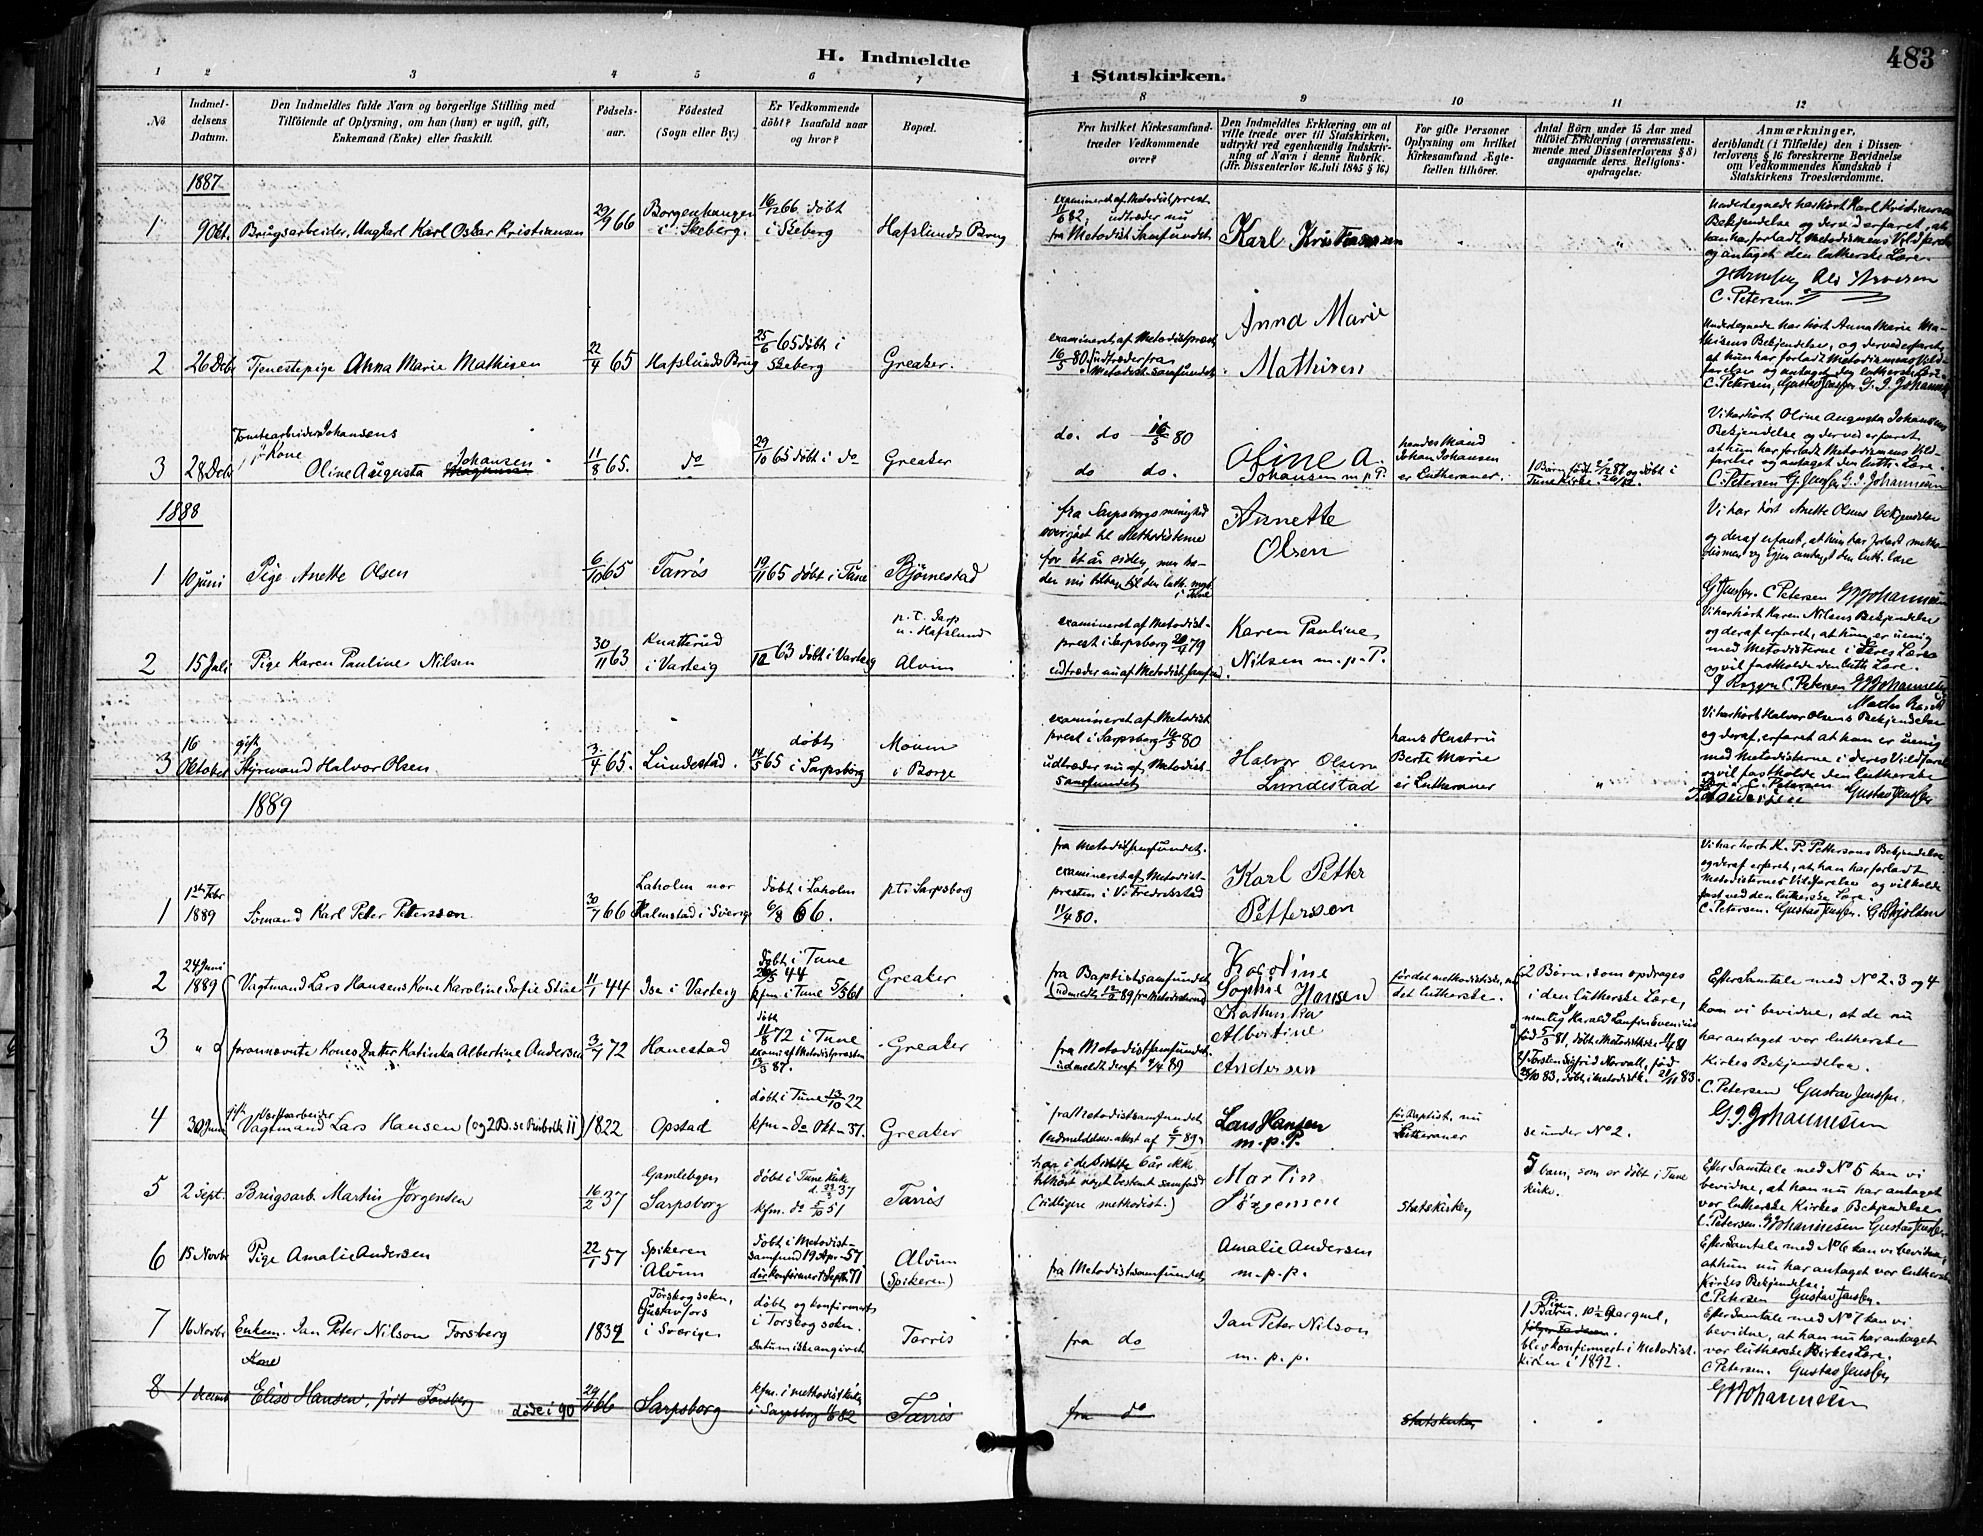 H. Indmeldte
i Statskirken.
483
1
2
3
4
5
6
7
8
9
10
11
12
No
Indmel-
delsens
Datum.
Den Indmeldtes fulde Navn og borgerlige Stilling med
Tilföiende af Oplysning, om han (hun) er ugift, gift,
Enkemand (Enke) eller fraskilt.
Födsels-
aar.
Födested
(Sogn eller By.)
Er Vedkommende
döbt? Isaafald naar
og hvor?
Bopæl.
Fra hvilket Kirkesamfund
træder Vedkommende
over?
Den Indmeldtes Erklæring om at
ville træde over til Statskirken,
udtrykt ved egenhændig Indskriv-
ning af Navn i denne Rubrik.
(Jfr. Dissenterlov 16 Juli 1845 § 16)
For gifte Personer
Oplysning om hvilket
Kirkesamfund Ægte-
fællen tilhörer.
Antal Börn under 15 Aar med
tilföiet Erklæring (overensstem-
mende med Dissenterlovens § 8)
angaaende deres Religions-
opdragelse.
Anmærkninger,
deriblandt (i Tilfælde) den i Dissen-
terlovens § 16 foreskrevne Bevidnelse
om Vedkommendes Kundskab i
Statskirkens Troeslærdomme.
1887
1
9 Okt.
Brugsarbeider, Ungkarl Karl Oskar Kristiansen
29/9 66
Borgenhaugen
i Skeberg.
16/12 66 döbt
i Skeberg
Hafslunds Brug
examineret af Metodistprest
11/6 82, udtræder nu
fra Metodist Samfundet
Karl Kristiansen
Undertegnede har hört Karl Kristiansens
Bekjendelse og derved erfaret, at
han har forladt Metodismens Vildfarelse
og antaget den lutherske Lære.
C. Petersen
2
26 Debr
Tjenestepige Anna Marie Mathisen
22/4 65
Hafslunds Brug
25/6 65 döbt i
Skeberg
Greaker.
examineret af Metodistprest
16/5 80, udtræder fra
Metodist-samfundet
Anna Marie
Mathisen
Undertegnede har hört Anna Marie Ma-
thisens Bekjendelse, og derved erfaret,
at hun har forladt Metodismens Vild-
farelse og antaget den lutherske Lære.
C. Petersen, Gustav Jensen G. J. Johannesen
3
28 Debr
Tomtearbeider Johansens
Kone
Oline Augusta Johansen
11/8 65.
do
29/10 65 döbt i do
Greaker
do. do 16/5 80
do do.
Oline A.
Johansen m. p. P.
hendes Mand
Johan Johansen
er Lutheraner.
1 Barn födt 87 og döbt i
Tune Kirke
Vi har hört Oline Augusta Johansens
Bekjendelse og derved erfaret
at hun har forladt Metodismens Vild-
farelse og antaget den luth. Lære.
C. Petersen G. Jensen G. J. Johannesen
1888
1
10 Juni
Pige Anette Olsen
6/10 65
Tarris
19/11 65 döbt i Tune
Björnestad
fra Sarpsborgs menighed
overgået til Methodisterne
for et år siden, men træ-
der nu tilbage til den luth. mgt
i Tune
Annette
Olsen
Vi har hört Anette Olsens bekjendelse
og deraf erfaret, at hun har forladt metho-
dismen og igjen antaget den luth. Lære
G. Jensen. C Petersen GJJohannesen
2
15 Juli
Pige Karen Pauline Nilsen
30/11 63
Knatterud
i Varteig
/12 63 döbt i Varteig
p. t. Sarp
u. Hafslund
Alvim
examineret af Metodist-
prest i Sarpsborg 20/4 79
udtræder nu af Metodist samfund.
Karen Pauline
Nilsen m. p. P.
Vi har hört Karen Nilsens Bekjendelse
og deraf erfaret, at hun er uenig
med Metodisterne i deres Lære
og vil fastholde den luth. Lære.
C. Petersen GJJohannesen
3
16
Oktober
gift
Styrmand Halvor Olsen
3/4 65.
Lundestad.
döbt
14/5 65 i Sarpsborg
Moum
i Borge
examineret af Metodist
prest i Sarpsborg 16/5 80
udtræder nu af Metodist-
samfundet
Halvor Olsen
Lundestad
hans Hustru
Berte Marie
er Lutheraner
Vi har hört Halvor Olsens Bekjendelse
og deraf erfaret at han er uenig
med Metodisterne i deres Vildfarelse
og vil fastholde den lutherske
C. Petersen Gustav Jensen
1889
1
1ste Febr
1889
Sömand Karl Peter Pettersson
30/7 66
Laholm nor
Halmstad i Sverige
Döbt i Laholm
6/8 66.
p.t. Sarpsborg
fra Metodistsamfundet.
examineret af Metodist-
presten i V. Fredrikstad
11/4 80.
Karl Petter
Petterson
Vi har hört K. P. Pettersons Bekjendelse
og deraf erfaret, at han har forladt
Metodisternes Vildfarelse og vil holde
fast ved den lutherske Lære.
C. Petersen. Gustav Jensen.
2
24 Juni
1889
Vagtmand Lars Hansens Kone Karoline Sofie Stine
11/1 44
Ise i Varteig
döbt i Tune
44
kfm. i Tune 5/5 61
Greaker
fra Baptistsamfundet
Karoline
Sophie Hansen
för det methodistiske, nu
det lutherske.
2 Börn, som opdrages
i den lutherske Lære,
nemlig Harald
81, döbt i Metodistkirke 81
2/ Torsten Sigfrid Norvall, föd
25/10 83, döbt i Metodistk. 83.
Efter Samtale med No 2. 3 og 4
kan vi bevidne, at de nu
har antaget vor lutherske
Kirkes Bekjendelse.
C. Petersen Gustav Jensen.
G. J. Johannesen
3
foranævnte Kones Datter Katinka Albertine Andersen
3/7 72
Hanestad
döbt
72 i Tune
exami. af Metodistpresten
13/5 87.
Greaker
fra Metodistsamfundet
udmeldt deraf 9/4 89
Kathinka
Albertine
Andersen
4
30 Juni
gift Værftsarbeider
Vagtmand Lars Hansen (og 2 B. se Rubrik 11)
1822
Opstad
döbt i Tune 13/10 22
kfm - do Okt - 37.
Greaker
fra Metodistsamfundet
Lars Hansen
m. p. P.
för Baptist, nu
Lutheraner
se under No 2.
5
2 Sept.
Brugsarb. Martin Jörgensen
16/2 37
Gamlebyen
Sarpsborg
döbt i Tune Kirke
37
kfm. do 5/10 51
Tarris
har i de sidste 6 år ikke
tilhört noget bestemt samfund
(tidligere methodist.)
Martin
Jörgensen
Statskirken
5 barn, som er döbt i Tune
Kirke.
Efter Samtale med No 5 kan vi
bevidne, at han nu har antaget
vor lutherske Kirkes Bekjendelse
C. Petersen. GJJohannesen Gustav Jensen
6
15 Novbr
Pige Amalie Andersen
22/1 57
Spikeren
Alvim
döbt i Metodist-
samfund 19 Apr. 57
der konfirmeret Septbr 71
Alvim
(Spikeren)
fra Metodistsamfundet,
Amalie Andersen
m. p. p.
Efter Samtale med No 6 kan vi bevidne,
at hun nu har antaget vor lutherske
Kirkes Bekjendelse.
C. Petersen Gustav Jensen.
7
16 Novbr.
Enkem. Jan Peter Nilson Forsberg
1837
Torskog sokn,
Gustavfors
i Sverige
döbt og konfirmert
i Torskog sokn.
Datum ikke angivet
Tarris
fra do
Jan Peter Nilson
m. p. p.
1 Pige 10½ År gml,
blev konfirmert i Metodist-
kirken i 1892.
Efter Samtale med No 7 kan vi
bevidne, at han nu har antaget
vor lutherske Kirkes Lære.
C. Petersen. Gustav Jensen
GJJohannesen
8
1 decemb
Kone
Elise Hansen, född Forsberg
döde i 90
66
Sarpsborg
kfm. i methodistkirken
i Sarpsborg 82
Tarris
fra do
Statskirken